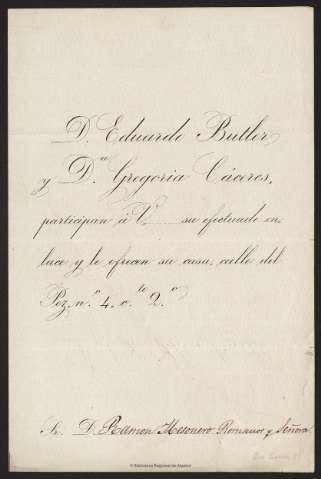 D. Eduardo Butler
y D.ª Gregoria Cáceres,
participan á V. su efectuado en-
lace y le ofrecen su casa, calle del
Pez, n.º 4. c.to 2.º
Sr. D. Ramon Mesonero Romanos y Señora